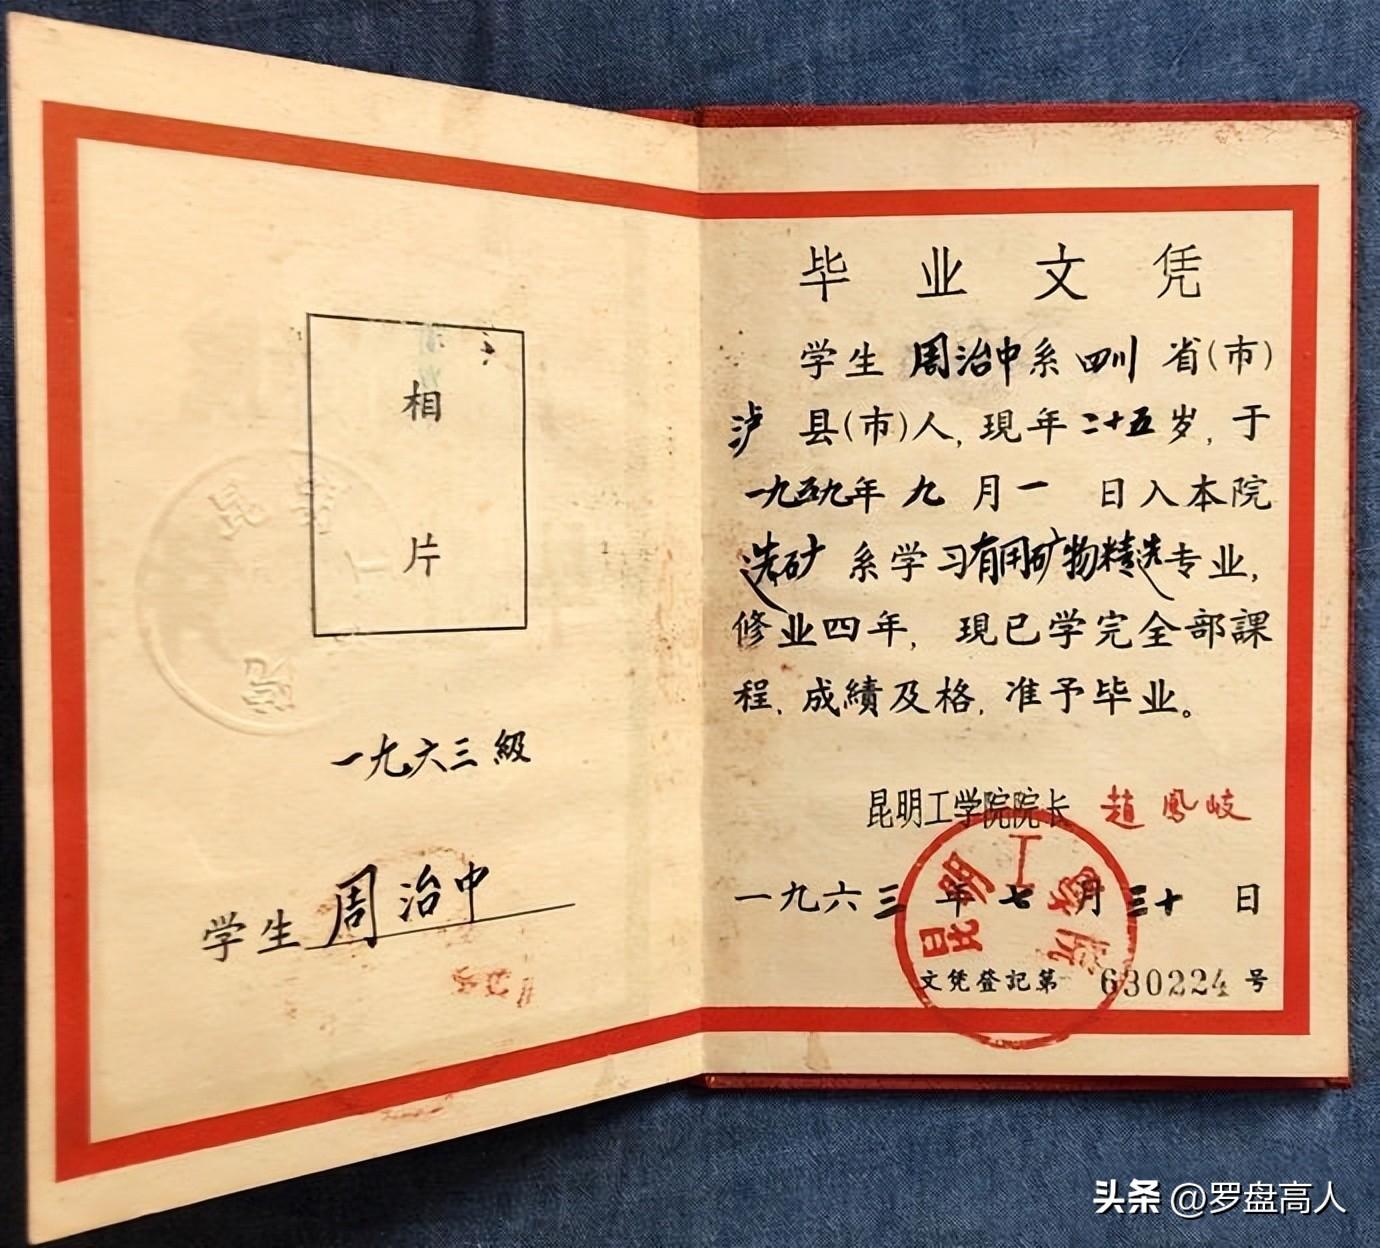 相
片
一九六三級
学生 周治中
毕业文凭
学生 周治中系 四川 省(市)
泸 县(市)人, 現年二十五岁, 于
一九五九年 九 月 一 日入本院
选矿 系学习有用矿物精选专业,
修业四年, 現已学完全部課
程, 成績及格, 准予毕业。
昆明工学院院长 趙鳳岐
一九六三 年 七 月 三十 日
昆明工學院
文凭登記第 630224 号
头条 @罗盘高人